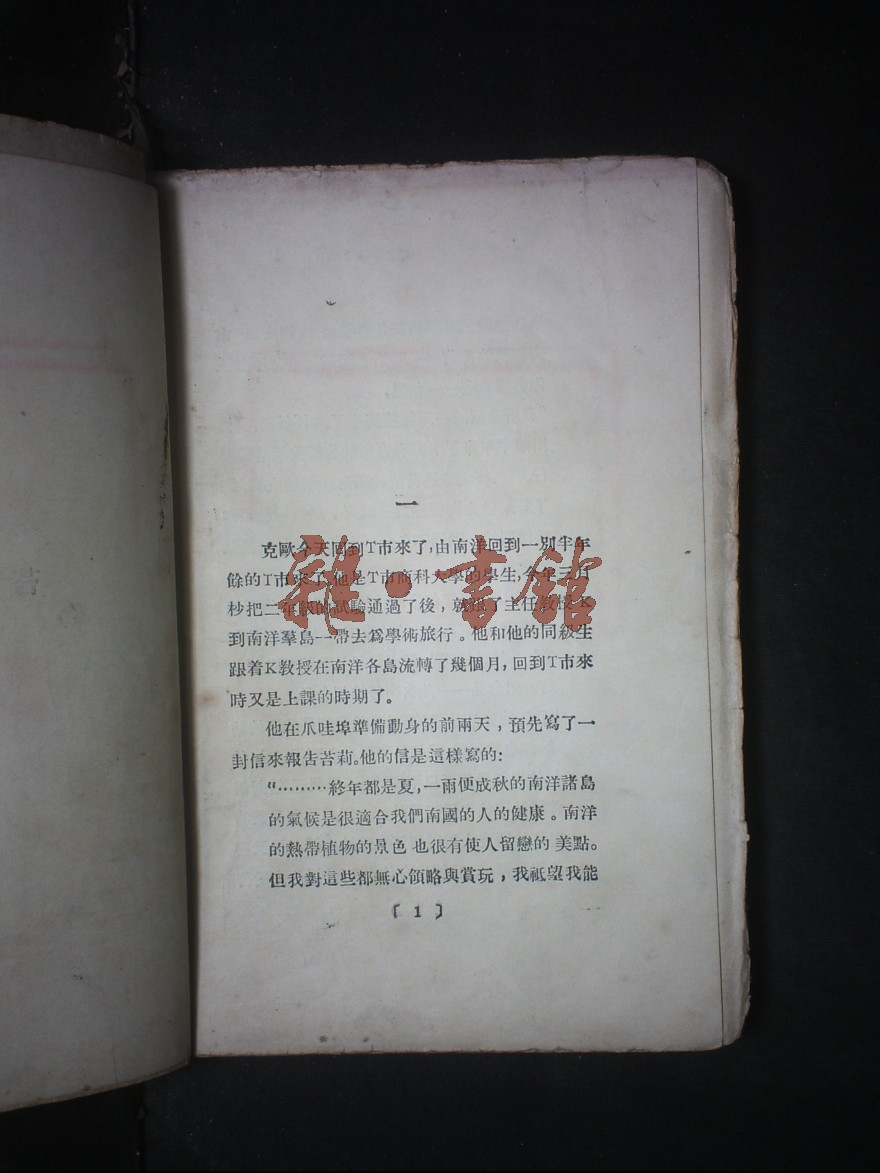 一
克歐今天回到T市來了，由南洋回到一別半年
餘的T市來了。他是T市商科大學的學生，今年三月
杪把二年級的試驗通過了後，就跟了主任教授K
到南洋羣島一帶去爲學術旅行。他和他的同級生
跟着K教授在南洋各島流轉了幾個月，回到T市來
時又是上課的時期了。
他在爪哇埠準備動身的前兩天，預先寫了一
封信來報告苔莉。他的信是這樣寫的：
“………終年都是夏，一雨便成秋的南洋諸島
的氣候是很適合我們南國的人的健康。南洋
的熱帶植物的景色也很有使人留戀的美點。
但我對這些都無心領略與賞玩，我祗望我能
〔1〕
雜·書館